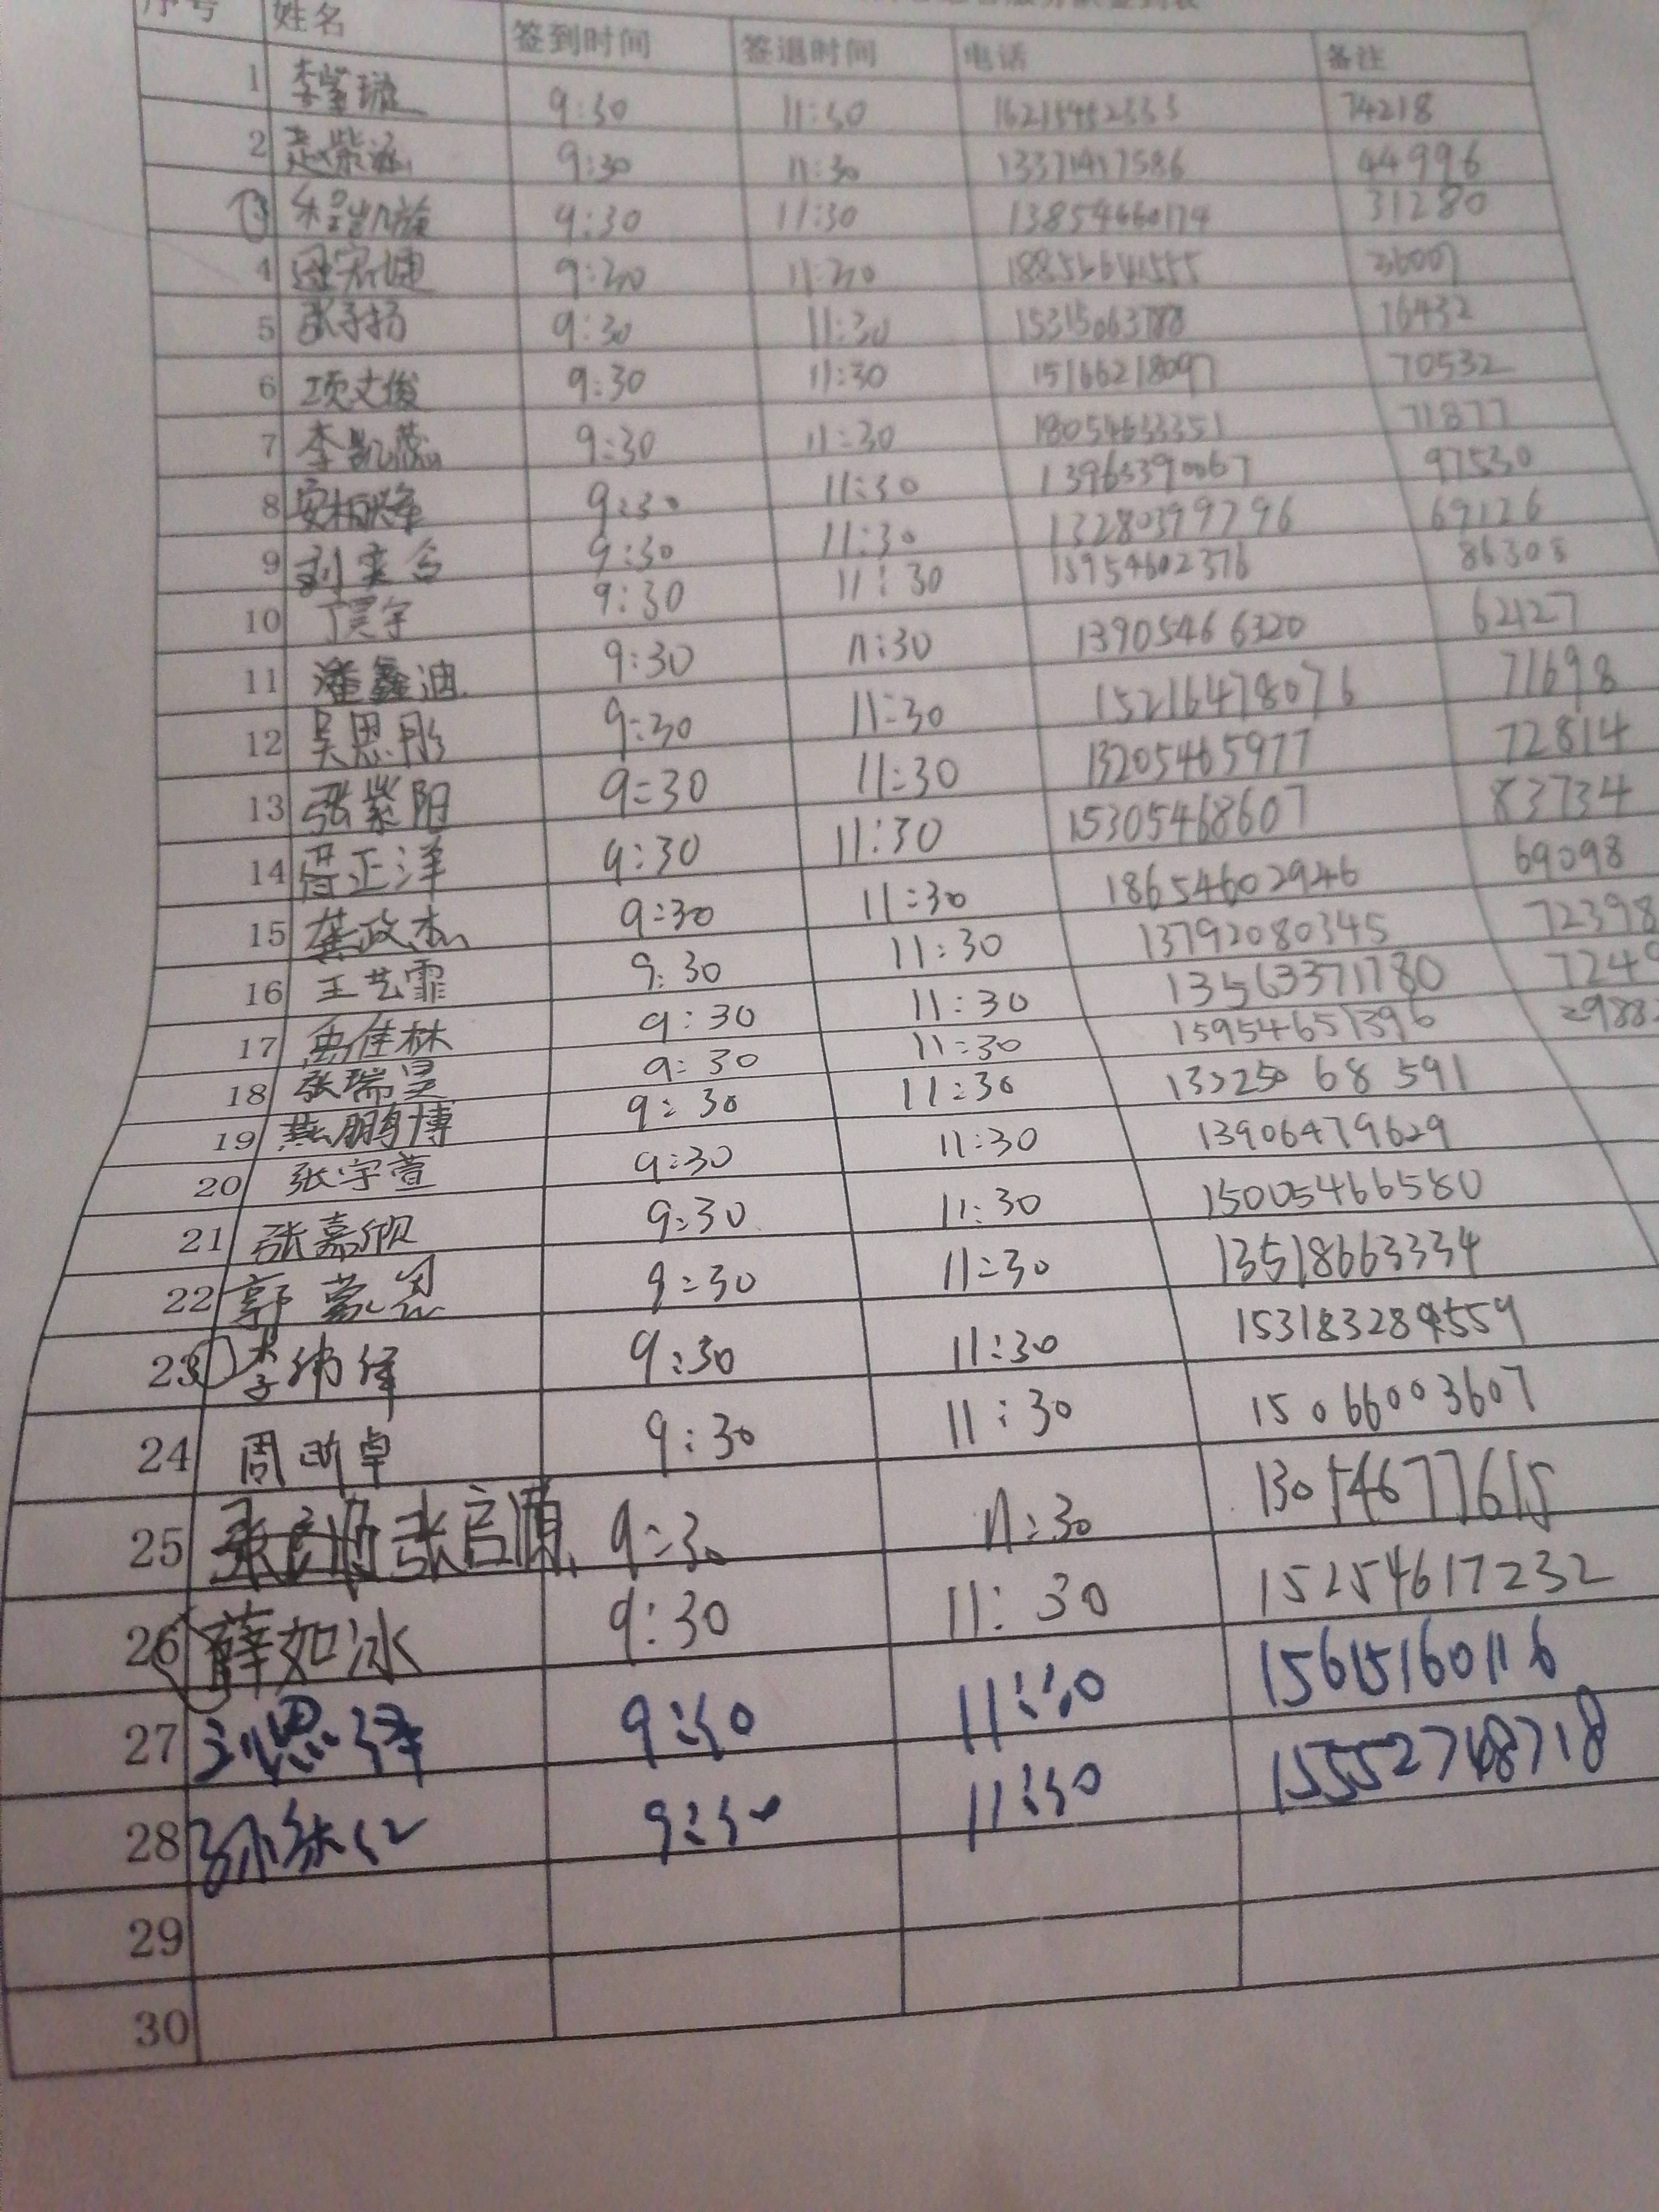 序号 姓名 签到时间 签退时间 电话 备注
1 9:30 11:30 74218
2 9:30 11:30 44996
3 9:30 11:30 13854660174 31280
4 9:30 11:30
5 张子扬 9:30 11:30 15315063788 16432
6 项文俊 9:30 11:30 15166218097 70532
7 李凯蕊 9:30 11:30 18054633351 71877
8 9:30 11:30 13963390067 97530
9 刘奕含 9:30 11:30 13280399796 69126
10 丁昊宇 9:30 11:30 13954602376 86308
11 潘鑫迪 9:30 11:30 13905466320 62127
12 吴思彤 9:30 11:30 15216478076 71698
13 张紫阳 9:30 11:30 13205465977 72814
14 正洋 9:30 11:30 15305468607 83734
15 龚政杰 9:30 11:30 18654602946 69098
16 王艺霏 9:30 11:30 13792080345 72398
17 禹佳林 9:30 11:30 13563371780 7249
18 张瑞昊 9:30 11:30 15954651396 2988
19 燕鹏博 9:30 11:30 68591
20 张宇萱 9:30 11:30 13906479629
21 张嘉欣 9:30 11:30 15005466580
22 郭 9:30 11:30 13518663334
23 李 9:30 11:30
24 周 卓 9:30 11:30 15066003607
25 张启源 9:30 11:30 13054677615
26 薛如冰 9:30 11:30 15254617232
27 刘恩泽 9:30 11:30 15615160116
28 9:30 11:30 15552748718
29
30